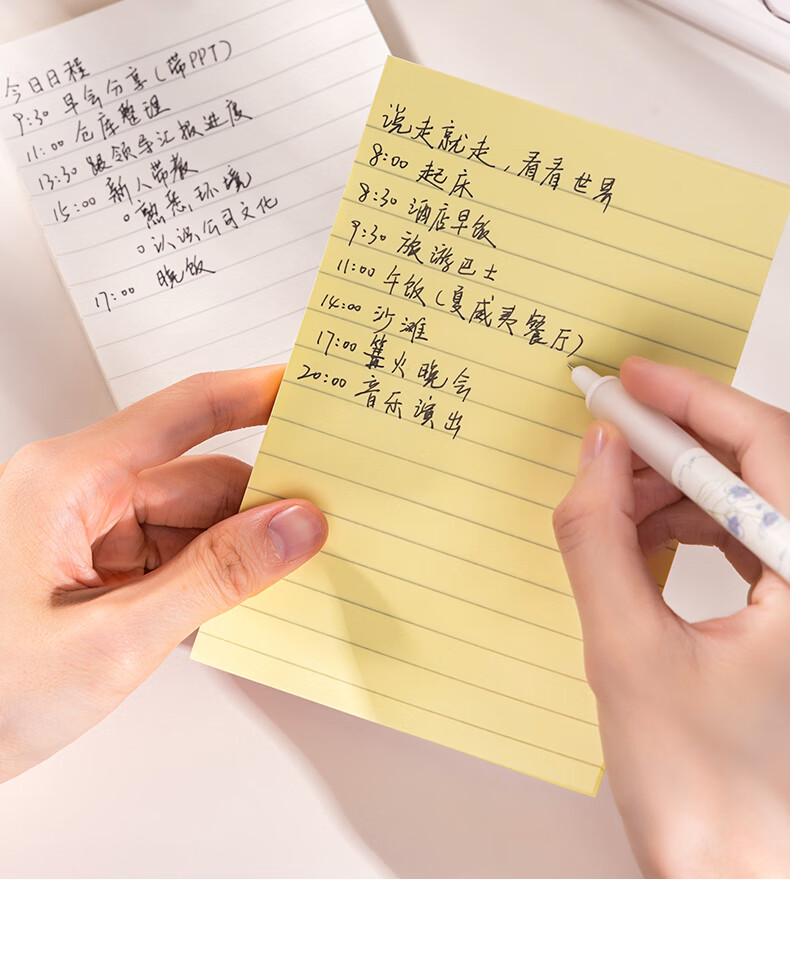 今日日程
9:30 早会分享(带PPT)
11:00 仓库整理
13:30 跟领导汇报进度
15:00 新人带教
o 熟悉环境
o 认识公司文化
17:00 晚饭
说走就走,看看世界
8:00 起床
8:30 酒店早饭
9:30 旅游巴士
11:00 午饭(夏威夷餐厅)
14:00 沙滩
17:00 篝火晚会
20:00 音乐演出